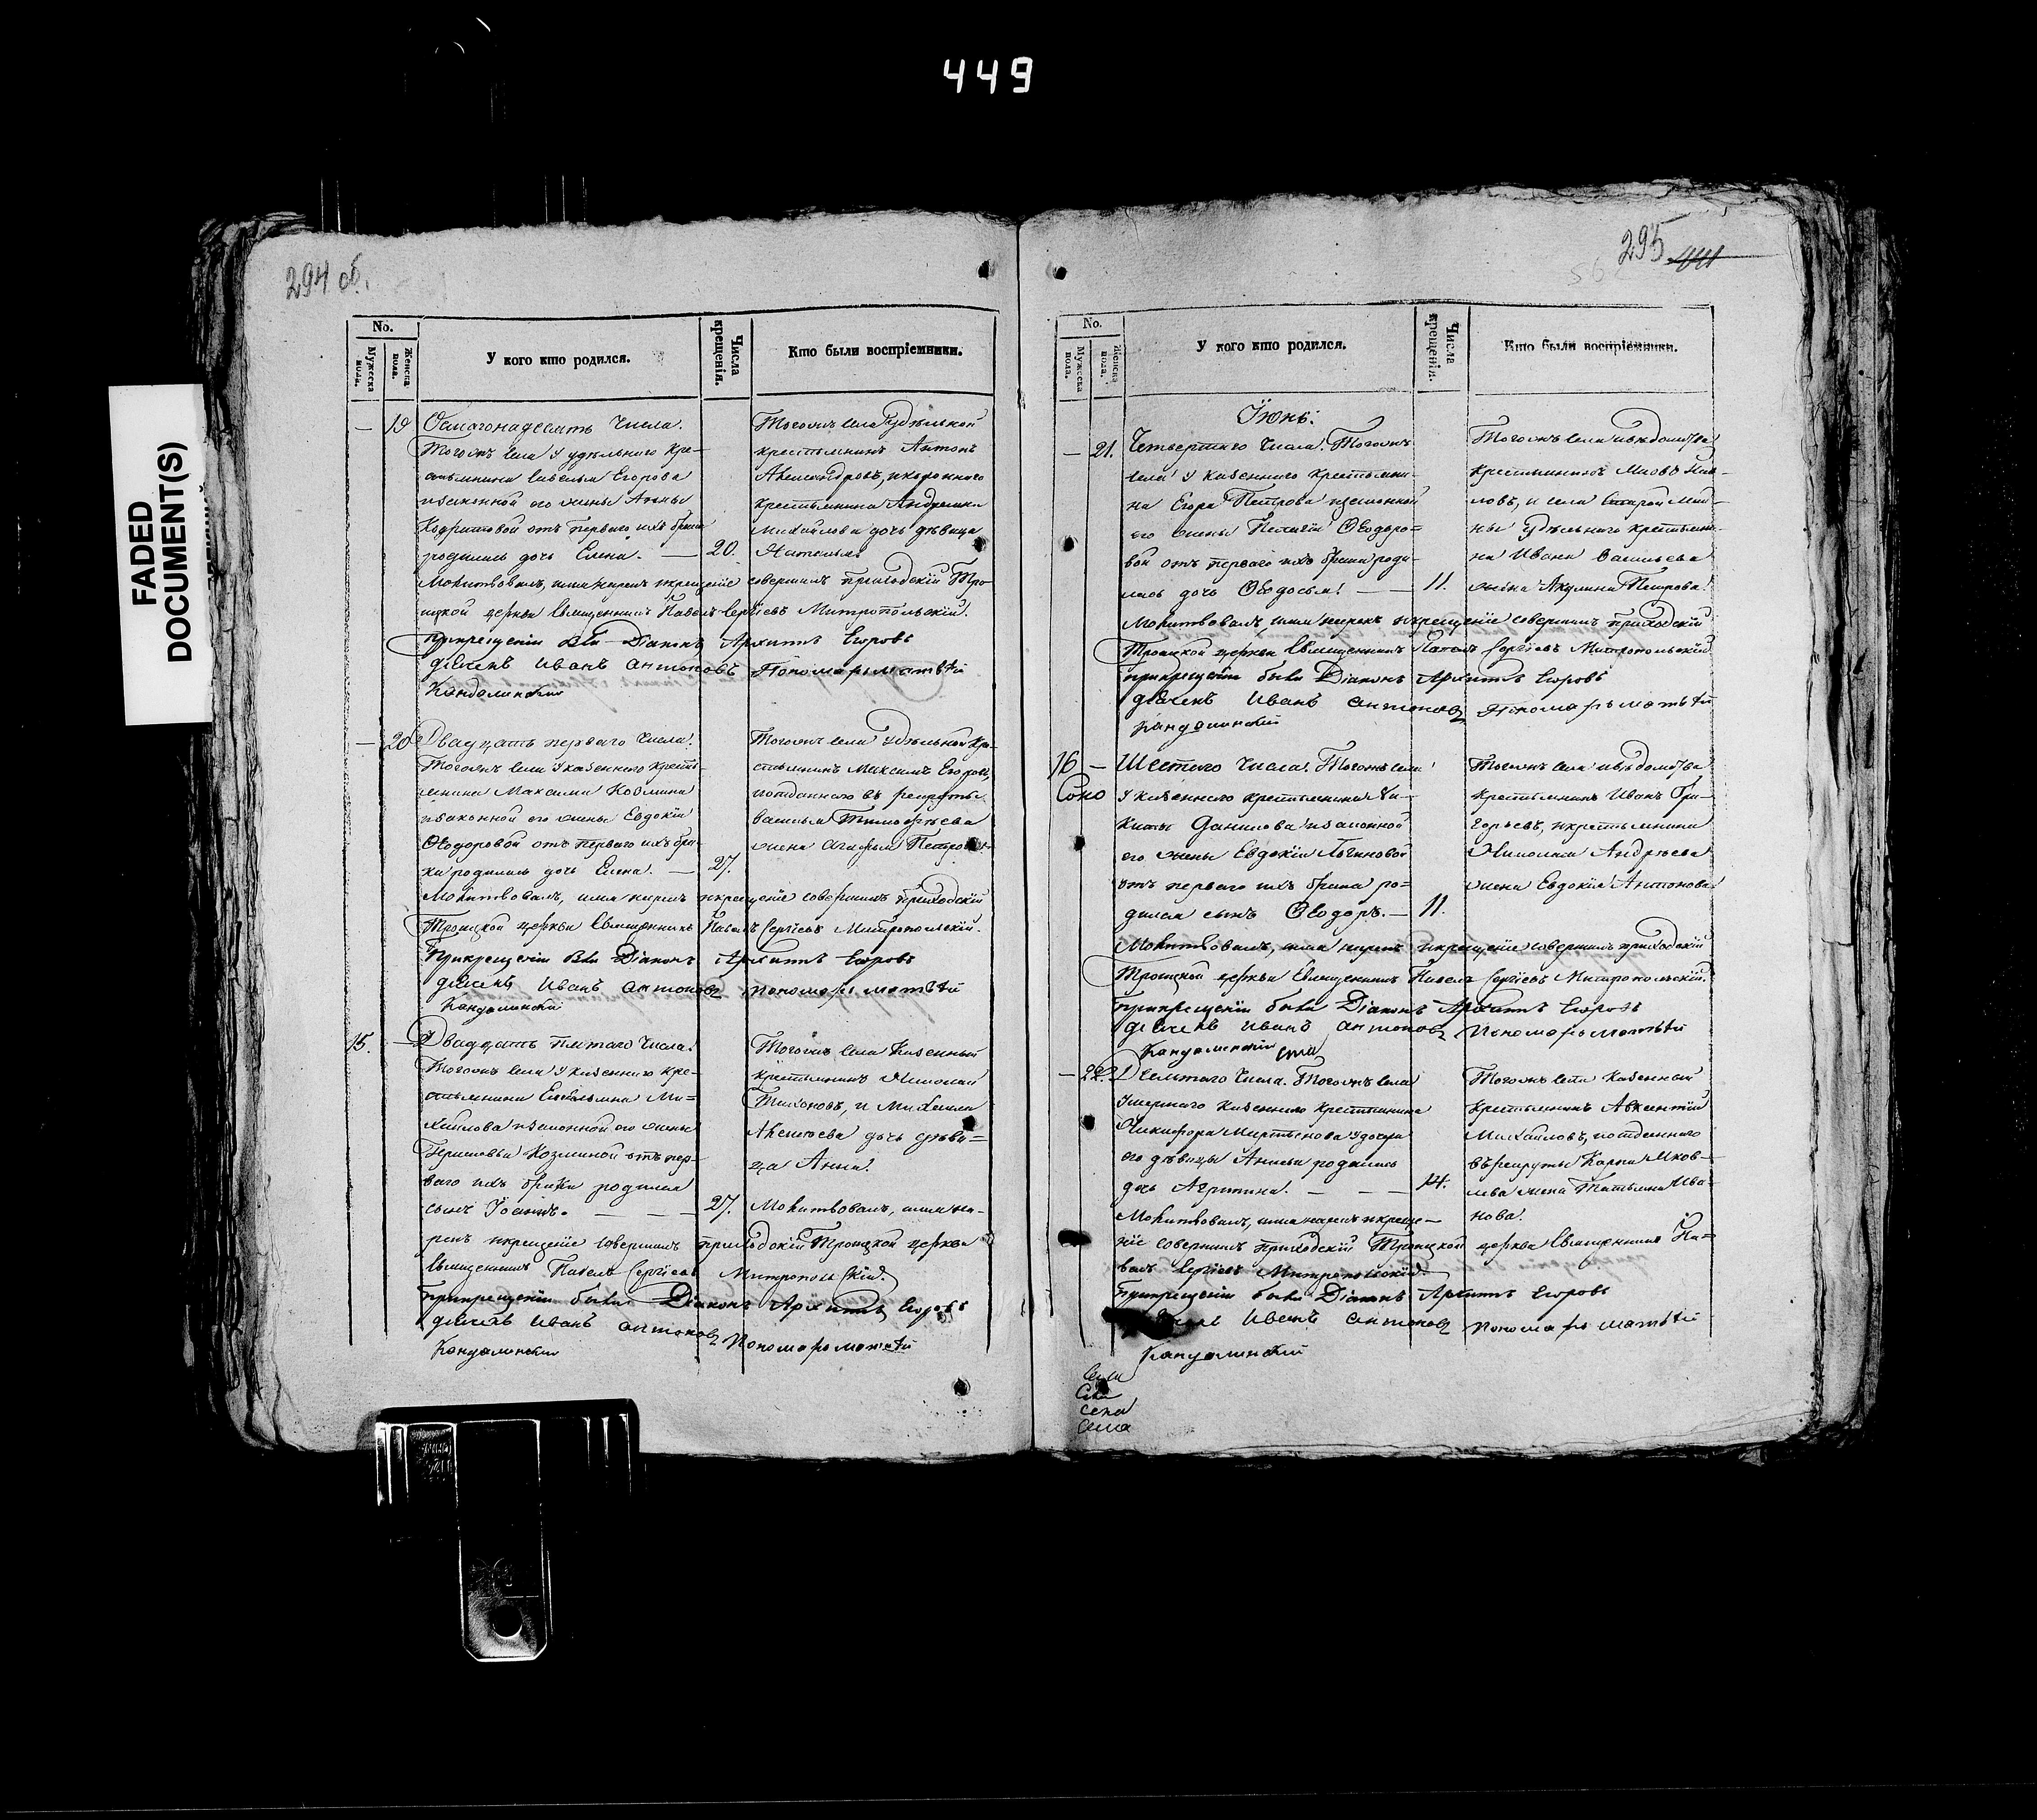 449
FADED
DOCUMENT(S)
294 об.
No.
Мужеска пола.
Женска пола.
У кого кто родился.
Числа крещенія.
Кто были воспріемники.
— 19 Осмагонадесять числа.
Тогожъ села у удѣльного кре-
стьянина Савелья Егорова
и законной его жены Анны
отъ перваго ихъ брака
родилась дочь Елена. — 20.
Тогожъ села удѣльной
крестьянинъ Антонъ
Александровъ, и
крестьянина Андреяна
Михайлова дочь дѣвица
Наталья
Молитвовалъ, имя нарекъ и крещеніе совершилъ приходскій Тро-
ицкой церкви священникъ Павелъ Сергіевъ Митропольскій.
При крещеніи были Діаконъ Архипъ Егоровъ
дьячекъ Иванъ Антоновъ Пономарь Матвѣй
Кандалинскій
— 20 Двадцать перваго числа.
Тогожъ села у казенного кресть-
янина Максима Козмина
и законной его жены Евдокіи
Ѳеодоровой отъ перваго ихъ бра-
ка родилась дочь Елена. — 27.
Тогожъ села удѣльной кре-
стьянинъ Максимъ Егоровъ,
и отданного въ рекруты
Василья Тимофѣева
жена Агафья Петрова.
Молитвовалъ, имя нарекъ и крещеніе совершилъ приходскій
Троицкой церкви священникъ Павелъ Сергіевъ Митропольскій.
При крещеніи были Діаконъ Архипъ Егоровъ
дьячекъ Иванъ Антоновъ Пономарь Матвѣй
Кандалинскій
15. — Двадцать пятаго числа.
Тогожъ села у казенного кре-
стьянина Емельяна Ми-
хайлова и законной его жены
Козминой отъ пер-
ваго ихъ брака родился
сынъ Іоаннъ. — — — 27.
Тогожъ села казенный
крестьянинъ Николай
Тихоновъ, и Михаила
Алексеева дочь дѣви-
ца Анна.
Молитвовалъ, имя на-
рекъ и крещеніе совершилъ приходскій Троицкой церкви
священникъ Павелъ Сергіевъ Митропольскій.
При крещеніи были Діаконъ Архипъ Егоровъ
дьячекъ Иванъ Антоновъ Пономарь Матвѣй
Кандалинскій
295
No.
Мужеска пола.
Женска пола.
У кого кто родился.
Числа крещенія.
Кто были воспріемники.
Іюнь:
— 21. Четвертаго числа. Тогожъ
села у казенного крестьяни-
на Егора Петрова и законной
его жены Пелагіи Ѳеодоро-
вой отъ перваго ихъ брака роди-
лась дочь Ѳеодосья. — — 11.
Тогожъ села и вѣдомства
крестьянинъ
и села Старой Май-
ны удѣльного крестьяни-
на Ивана Васильева
жена Акулина Петрова.
Молитвовалъ, имя нарекъ и крещеніе совершилъ приходскій
Троицкой церкви священникъ Павелъ Сергіевъ Митропольскій
При крещеніи были Діаконъ Архипъ Егоровъ
дьячекъ Иванъ Антоновъ Пономарь Матвѣй
Кандалинскій
16 — Шестаго числа. Тогожъ села
у казенного крестьянина Ни-
киты Данилова и законной
его жены Евдокіи Логиновой
отъ перваго ихъ брака ро-
дился сынъ Ѳеодоръ. — 11.
Тогожъ села и вѣдомства
крестьянинъ Иванъ Гри-
горьевъ, и крестьянина
Николая Андрѣева
жена Евдокія Антонова
Молитвовалъ, имя нарекъ и крещеніе совершилъ приходскій
Троицкой церкви священникъ Павелъ Сергіевъ Митропольскій.
При крещеніи были Діаконъ Архипъ Егоровъ
дьячекъ Иванъ Антоновъ Пономарь Матвѣй
Кандалинскій
— 22. Девятаго числа. Тогожъ села
умершаго казенного крестьянина
Никифора Мартынова у дочери
его дѣвицы Анисьи родилась
дочь Агрипина. — — — 14.
Тогожъ села казенный
крестьянинъ Авксентій
Михайловъ, и отданного
въ рекруты Карпа Яков-
лева жена Татьяна Ива-
нова.
Молитвовалъ, имя нарекъ и креще-
ніе совершилъ приходскій Троицкой церкви священникъ Па-
велъ Сергіевъ Митропольскій.
При крещеніи были Діаконъ Архипъ Егоровъ
Иванъ Антоновъ Пономарь Матвѣй
Кандалинскій
села
села
села
села